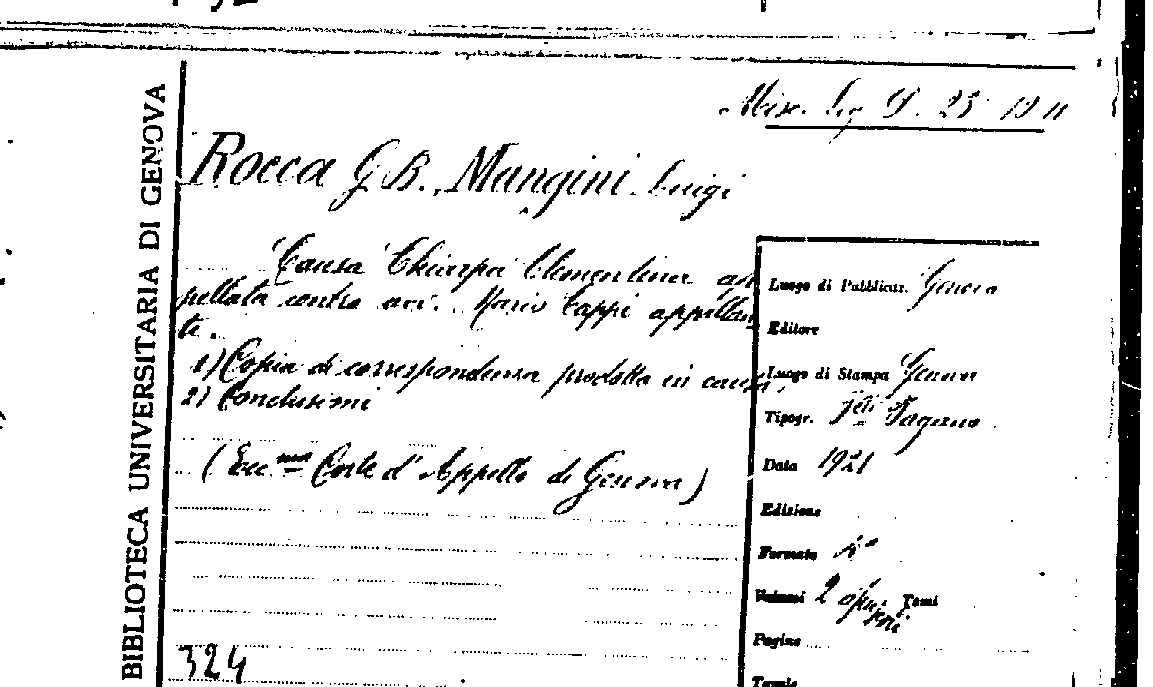 BIBLIOTECA UNIVERSITARIA DI GENOVA
Misc. Leg. 23
Rocca G. B., Mangini Luigi
Causa Chiarpa Clementina ap
pellata contro avv. Mario Cappi appellan
te.
1) Copia di corrispondenza prodotta in causa,
2) Conclusioni
(Ecc.ma Corte d'Appello di Genova)
324
Luogo di Pubblicaz. Genova
Editore
Luogo di Stampa Genova
Tipogr. F.lli Pagano
Data 1921
Edizione
Formato
Volumi 2 opuscoli Tomi
Pagine
Tavole